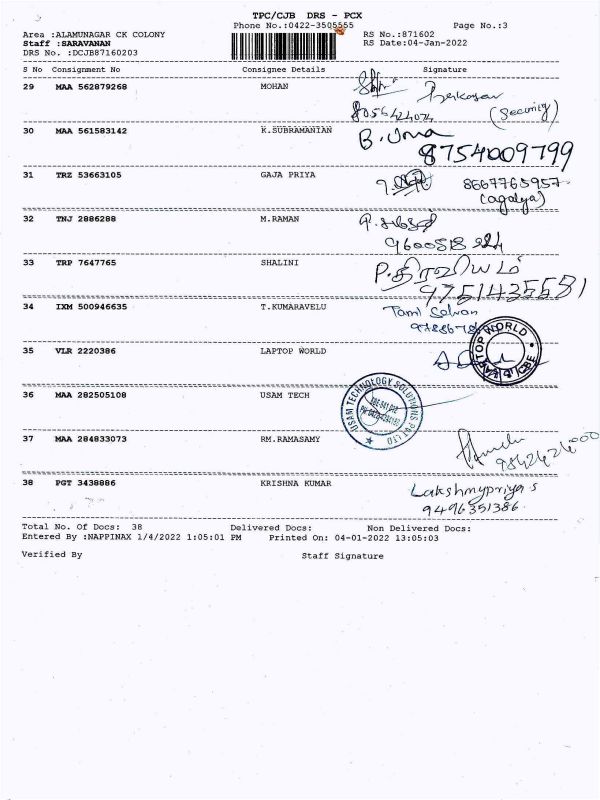 TPC/CJB DRS - PCX
Phone No.:0422-3505555 Page No.:3
Area :ALAMUNAGAR CK COLONY RS No.:871602
Staff :SARAVANAN RS Date:04-Jan-2022
DRS No. :DCJB87160203
S No Consignment No Consignee Details Signature
29 MAA 562879268 MOHAN
8056424074 (Security)
30 MAA 561583142 K.SUBRAMANIAN B. Uma
8754009799
31 TRZ 53663105 GAJA PRIYA 8667765957
(agalya)
32 TNJ 2886288 M.RAMAN
9600518
33 TRP 7647765 SHALINI P. திரவியம்
9751435551
34 IXM 500946635 T.KUMARAVELU Tamil Selvan
35 VLR 2220386 LAPTOP WORLD
36 MAA 282505108 USAM TECH USAM TECHNOLOGY SOLUTIONS PVT LTD
37 MAA 284833073 RM.RAMASAMY
38 PGT 3438886 KRISHNA KUMAR Lakshmypriya s
9496351386
Total No. Of Docs: 38 Delivered Docs: Non Delivered Docs:
Entered By :NAPPINAX 1/4/2022 1:05:01 PM Printed On: 04-01-2022 13:05:03
Verified By Staff Signature